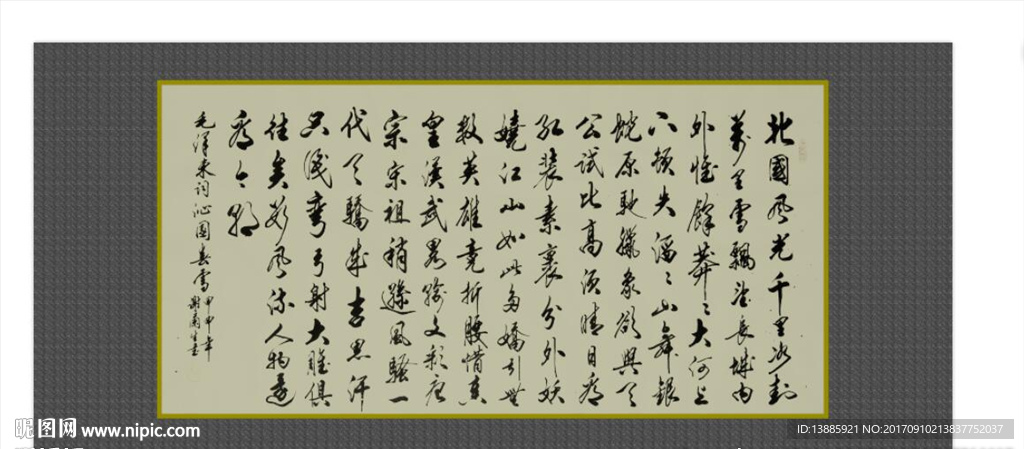 北國風光千里冰封
萬里雪飄望長城内
外惟餘莽〻大河上
下頓失滔〻山舞銀
蛇原馳臘象欲與天
公試比高須晴日看
紅裝素裹分外妖
嬈江山如此多嬌引無
數英雄競折腰惜秦
皇漢武畧輸文彩唐
宗宋祖稍遜風騷一
代天驕成吉思汗
只識彎弓射大雕俱
往矣數風流人物還
看今朝
毛澤東詞沁園春雪
昵图网 www.nipic.com
ID:13885921 NO:20170910213837752037